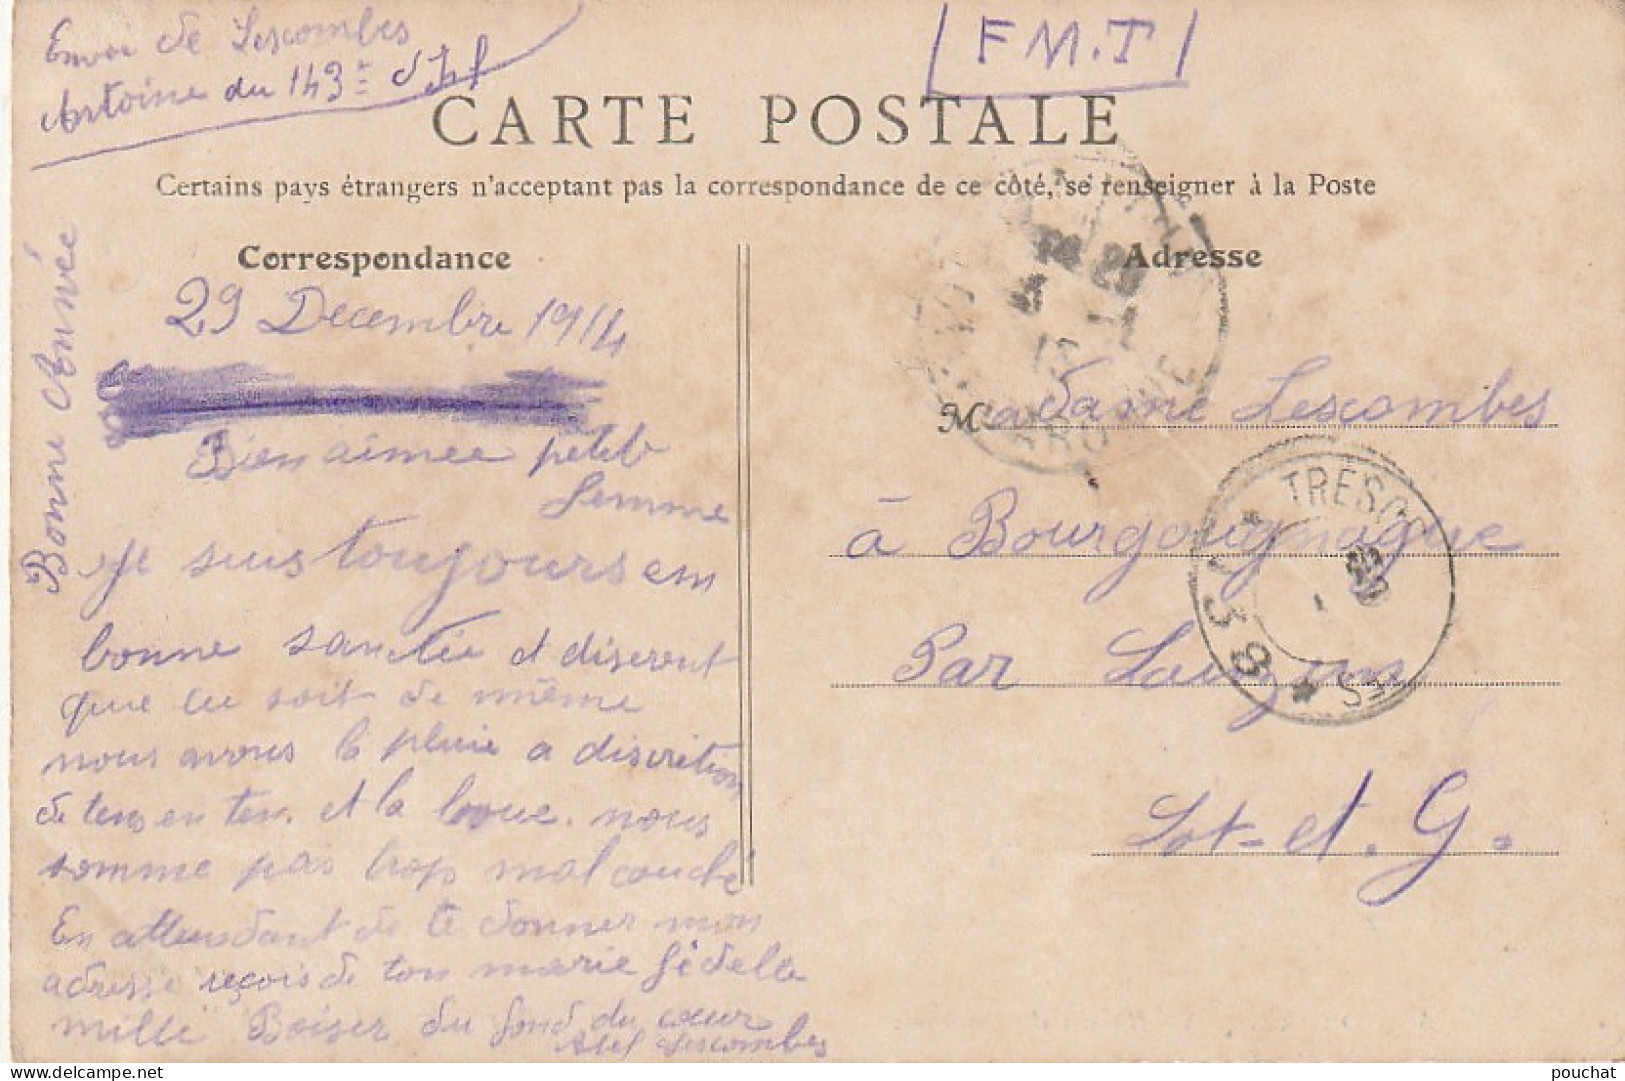 Envoi de Lescombes
Antoine du 143e d'Inf
F M. T
CARTE POSTALE
Certains pays étrangers n'acceptant pas la correspondance de ce côté, se renseigner à la Poste
Correspondance
Adresse
Bonne Année
29 Decembre 1914
Bien aimee petite
femme
Je suis toujours en
bonne sanctée et diserent
que tu soit de même
nous avons la pluie a discretion
de tens en tens et la boue. nous
somme pas trop mal couché
En attendant de te donner mon
adresse reçois de ton marie fidelle
mille Baiser du fond du cœur
Lescombes
Madame Lescombes
à Bourgougnague
Par Lauzun
Lot-et. G.
TRESOR
* 138 *